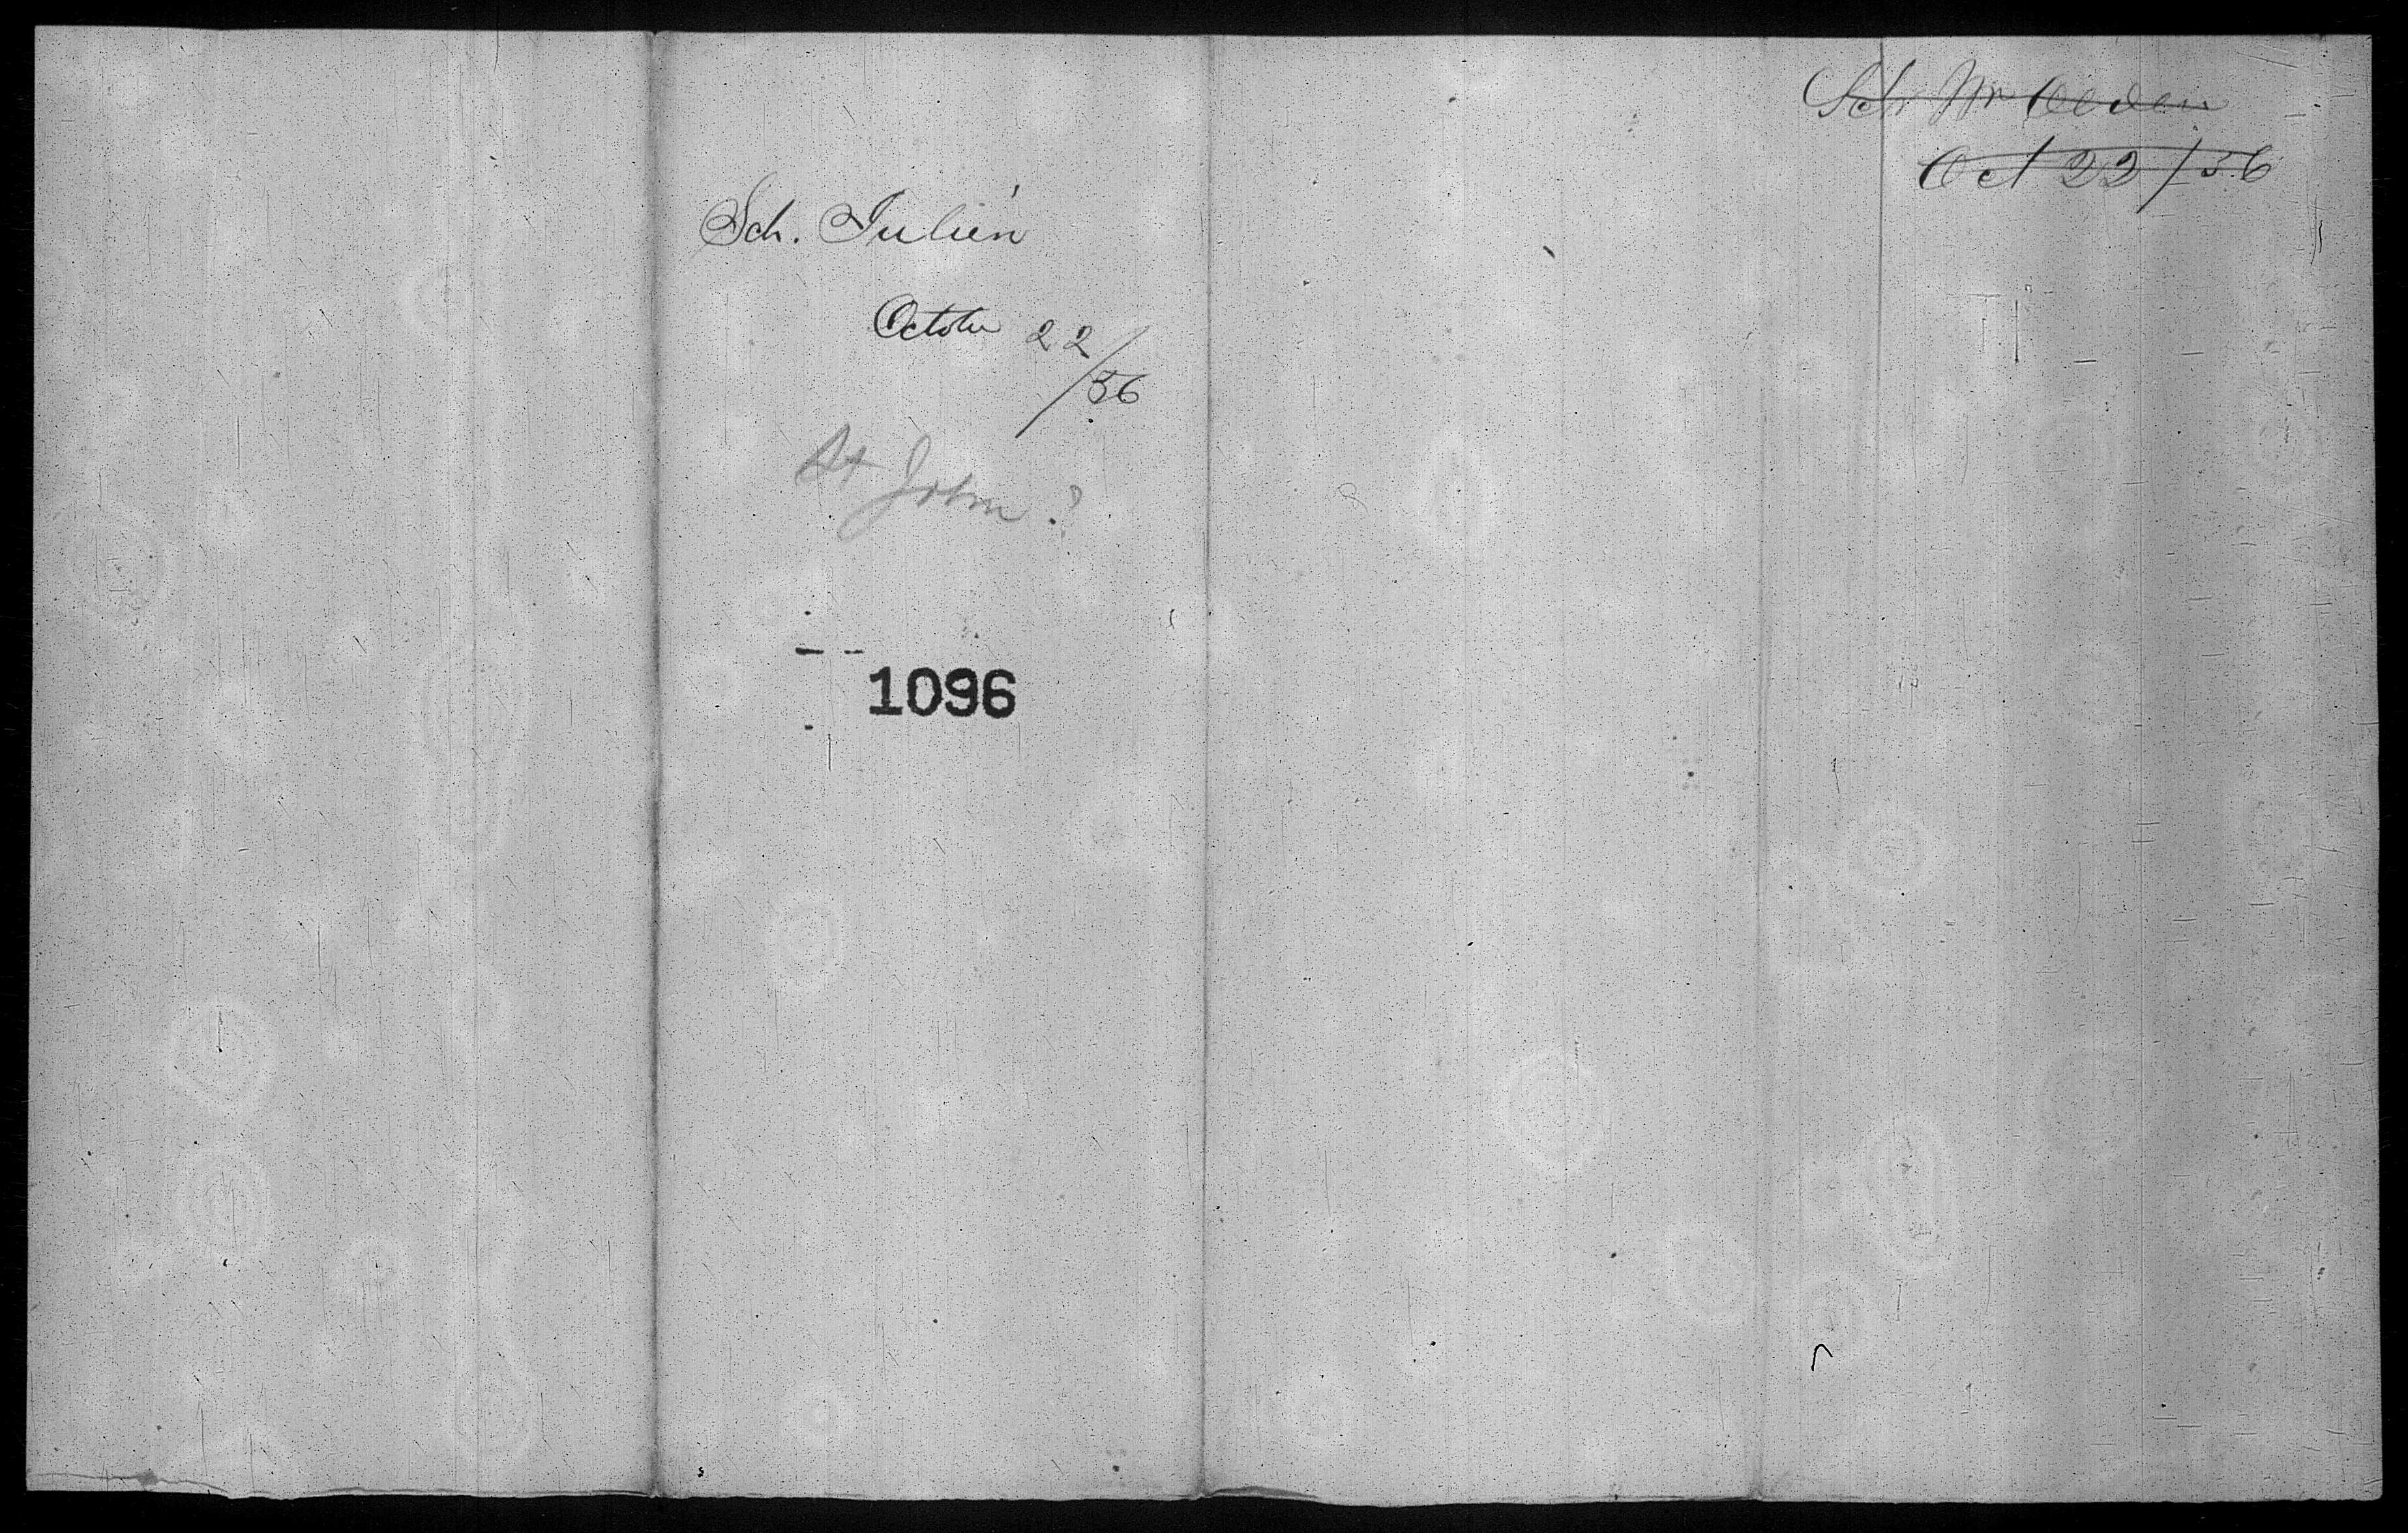 Sch. Julien
October 22/
/56
St John?
1096
Sch Wm
Oct 22/56